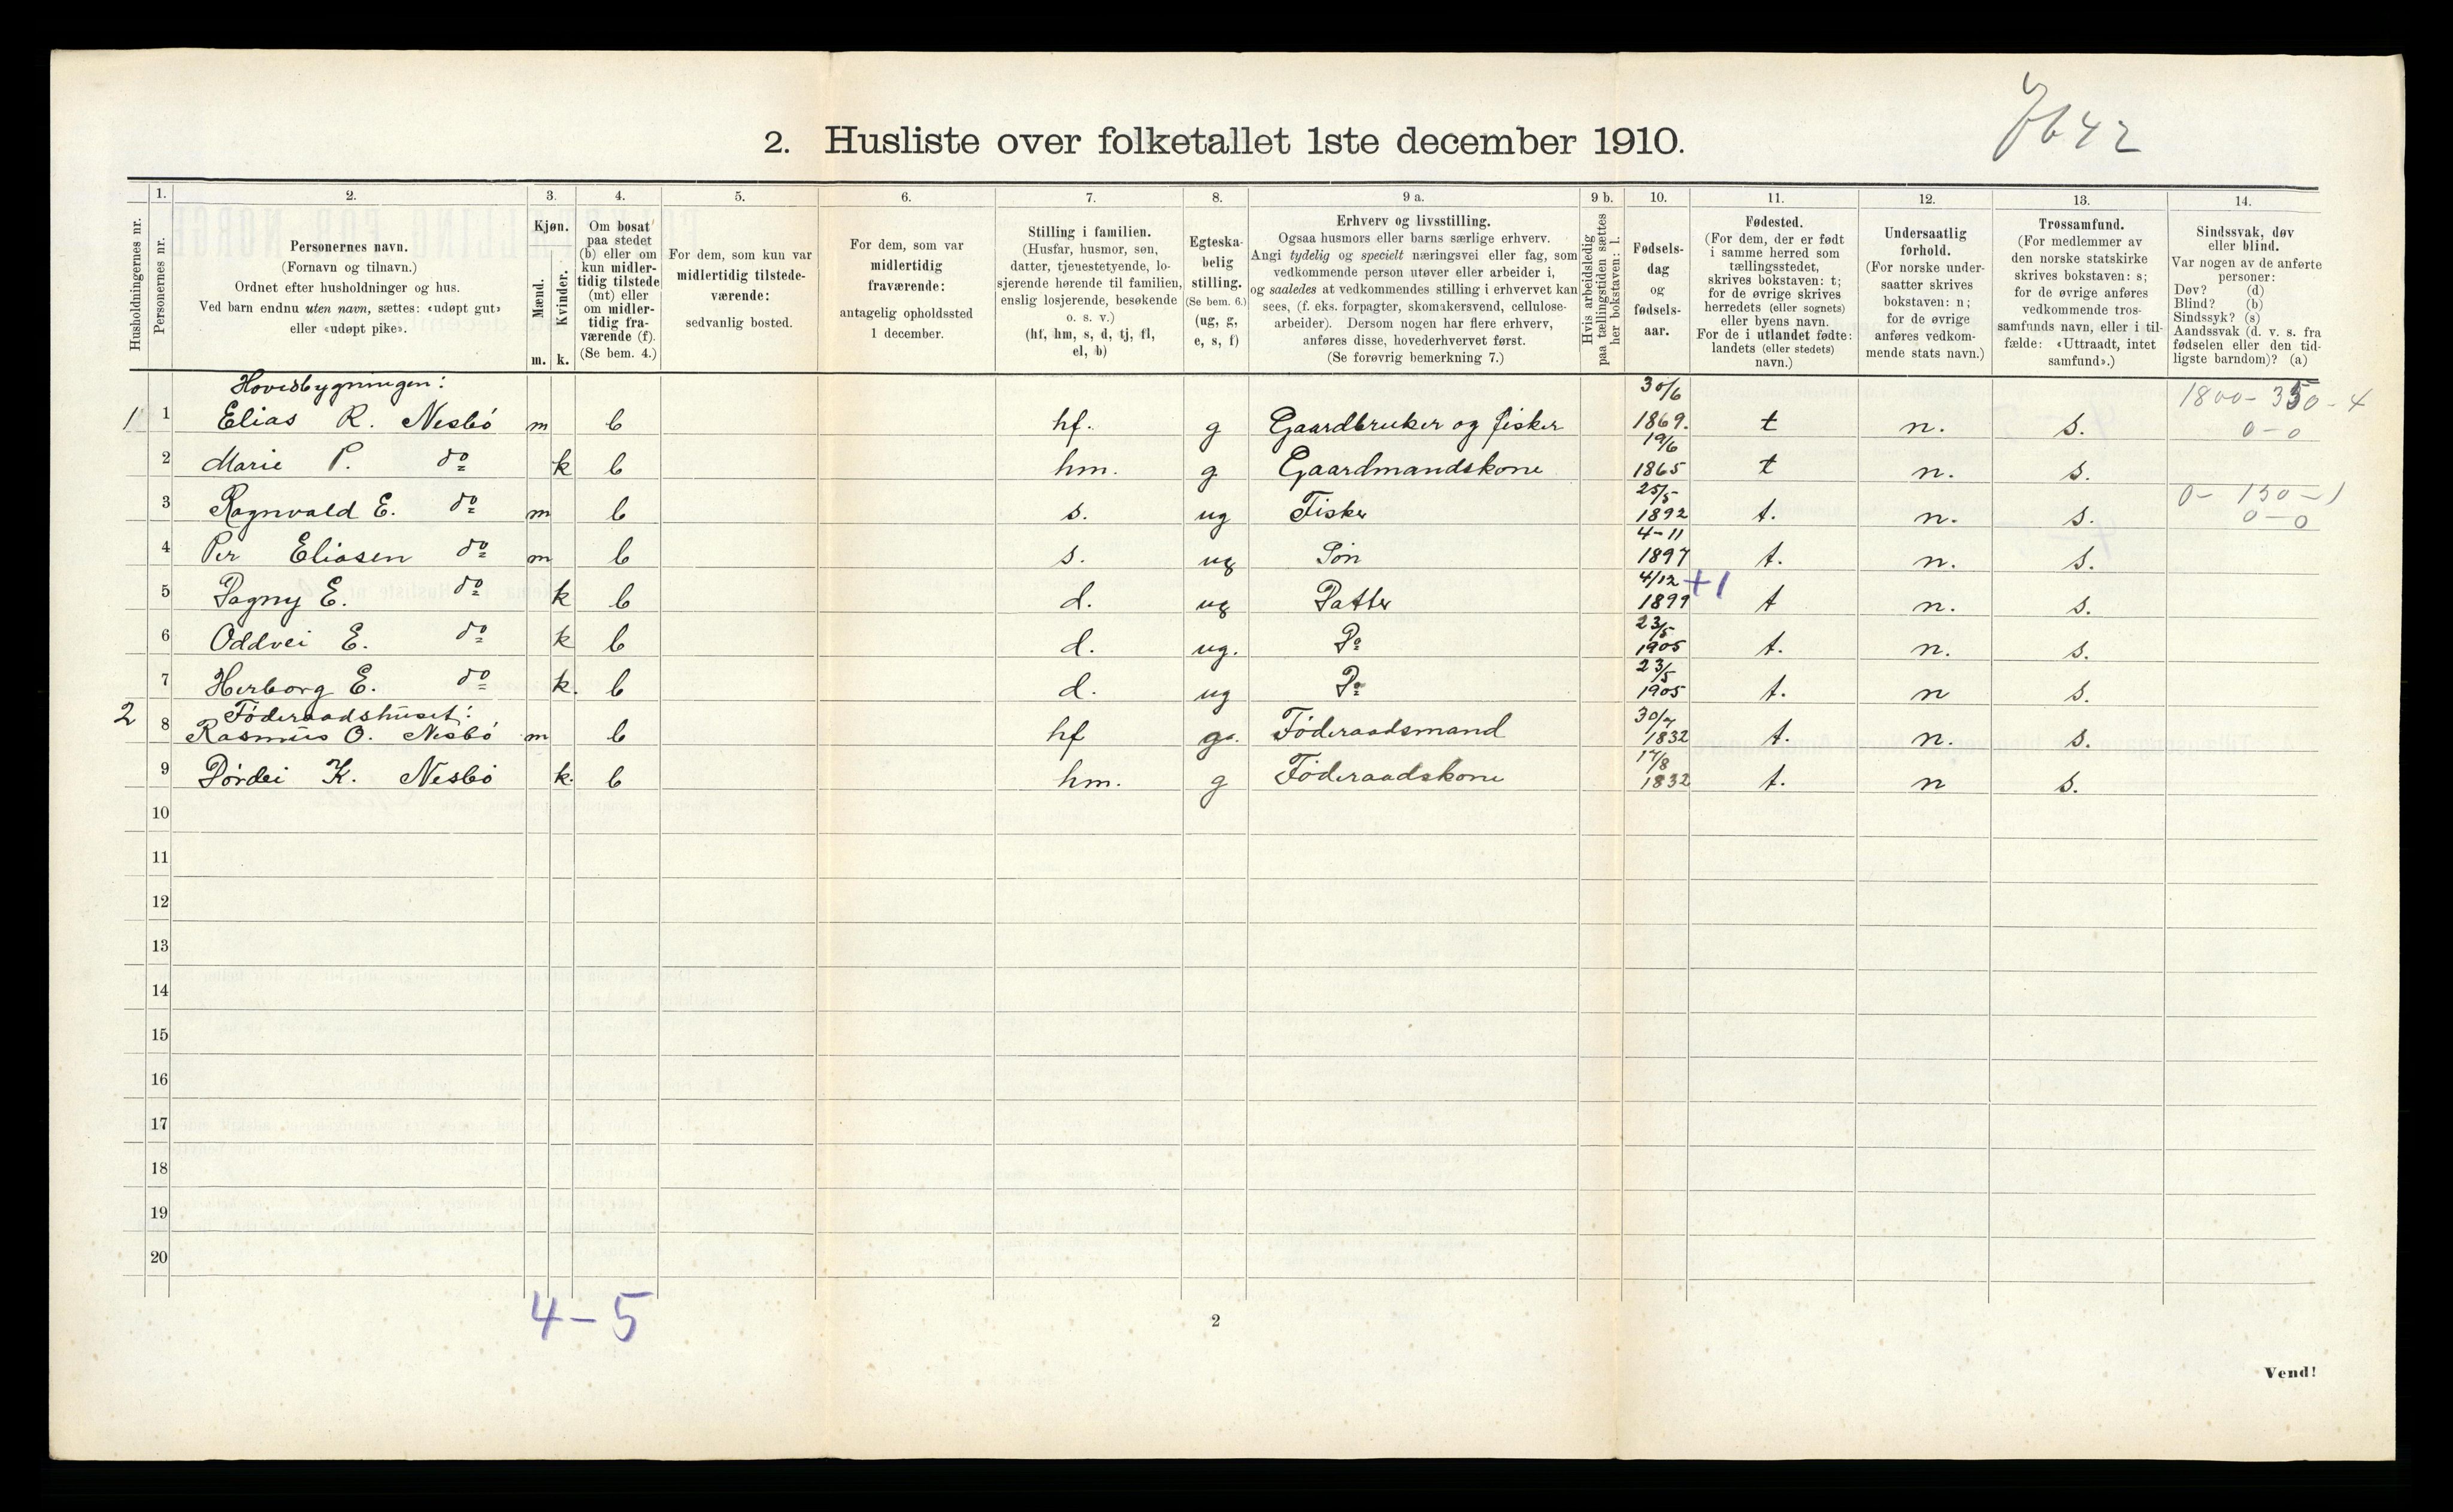 2. Husliste over folketallet 1ste december 1910.
1. 2. 3. 4. 5. 6. 7. 8. 9 a. 9 b. 10. 11. 12. 13. 14.
Husholdningernes nr.
Personernes nr.
Personernes navn.
(Fornavn og tilnavn.)
Ordnet efter husholdninger og hus.
Ved barn endnu uten navn, sættes: «udøpt gut»
eller «udøpt pike».
Kjøn.
Mænd.
Kvinder.
m. k.
Om bosat
paa stedet
(b) eller om
kun midler-
tidig tilstede
(mt) eller
om midler-
tidig fra-
værende (f).
(Se bem. 4.)
For dem, som kun var
midlertidig tilstede-
værende:
sedvanlig bosted.
For dem, som var
midlertidig
fraværende:
antagelig opholdssted
1 december.
Stilling i familien.
(Husfar, husmor, søn,
datter, tjenestetyende, lo-
sjerende hørende til familien,
enslig losjerende, besøkende
o. s. v.)
(hf, hm, s, d, tj, fl,
el, b)
Egteska-
belig
stilling.
(Se bem. 6.)
(ug, g,
e, s, f)
Erhverv og livsstilling.
Ogsaa husmors eller barns særlige erhverv.
Angi tydelig og specielt næringsvei eller fag, som
vedkommende person utøver eller arbeider i,
og saaledes at vedkommendes stilling i erhvervet kan
sees, (f. eks. forpagter, skomakersvend, cellulose-
arbeider). Dersom nogen har flere erhverv,
anføres disse, hovederhvervet først.
(Se forøvrig bemerkning 7.)
Hvis arbeidsledig
paa tællingstiden sættes
her bokstaven: l.
Fødsels-
dag
og
fødsels-
aar.
Fødested.
(For dem, der er født
i samme herred som
tællingsstedet,
skrives bokstaven: t;
for de øvrige skrives
herredets (eller sognets)
eller byens navn.
For de i utlandet fødte:
landets (eller stedets)
navn.)
Undersaatlig
forhold.
(For norske under-
saatter skrives
bokstaven: n;
for de øvrige
anføres vedkom-
mende stats navn.)
Trossamfund.
(For medlemmer av
den norske statskirke
skrives bokstaven: s;
for de øvrige anføres
vedkommende tros-
samfunds navn, eller i til-
fælde: «Uttraadt, intet
samfund».)
Sindssvak, døv
eller blind.
Var nogen av de anførte
personer:
Døv? (d)
Blind? (b)
Sindssyk? (s)
Aandssvak (d. v. s. fra
fødselen eller den tid-
ligste barndom)? (a)
Hovedbygningen: 30/6 1800 - 350 - 4
1 1 Elias R. Nesbö m b hf. g Gaardbruker og fisker 1869. t n. s. 0 - 0
19/6
2 Marie P. do k b hm. g Gaardmandskone 1865 t n. s.
25/5 0 - 150 - 1
3 Ragnvald E. do m b s. ug Fisker 1892 t. n. s. 0 - 0
4-11
4 Per Eliasen do m b s. ug Sön 1897 t. n. s.
4/12 +1
5 Dagny E. do k b d. ug Datter 1899 t n. s.
23/5
6 Oddvei E. do k b d. ug. Do 1905 t. n. s.
23/5
7 Herborg E. do k. b d. ug Do 1905 t. n s.
Föderaadshuset: 30/7
2 8 Rasmus O. Nesbö m b hf g. Föderaadsmand 1832 t. n. s.
17/8
9 Dördei K. Nesbö k. b hm. g Föderaadskone 1832 t. n s.
10
11
12
13
14
15
16
17
18
19
20
4-5
2
Vend!